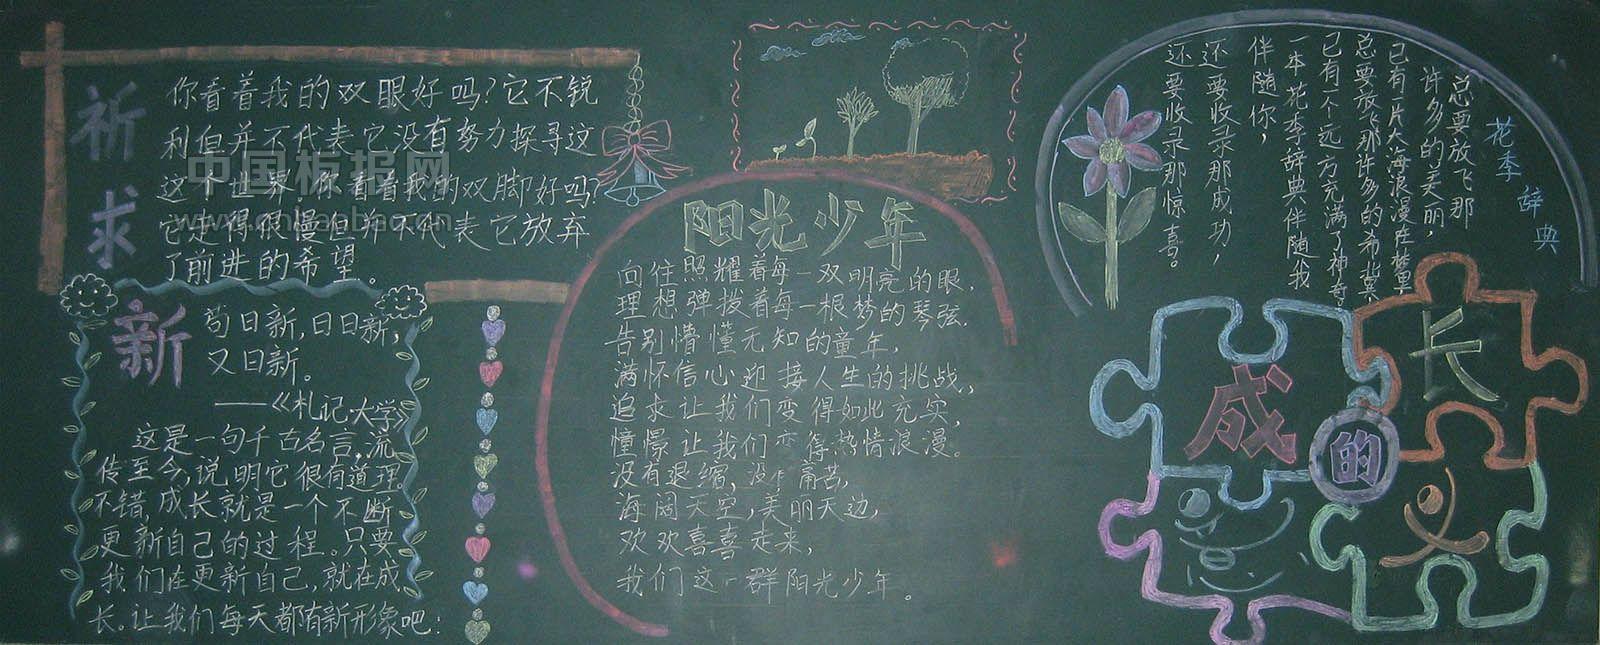 祈求
你看着我的双眼好吗?它不锐
利但并不代表它没有努力探寻这
这个世界,你看着我的双脚好吗?
它走得很慢但并不代表它放弃
了前进的希望。
中国板报网
www.chinabao.cn
新
苟日新,日日新,
又日新。
——《札记·大学》
这是一句千古名言,流
传至今,说明它很有道理。
不错,成长就是一个不断
更新自己的过程。只要
我们在更新自己,就在成
长。让我们每天都有新形象吧!
阳光少年
向往照耀着每一双明亮的眼,
理想弹拨着每一根梦的琴弦.
告别懵懂无知的童年,
满怀信心迎接人生的挑战,
追求让我们变得如此充实,
憧憬让我们变得热情浪漫。
没有退缩,没有痛苦,
海阔天空,美丽天边,
欢欢喜喜走来,
我们这一群阳光少年。
花季辞典
总要放飞那
许多的美丽,
已有一片大海浪漫在梦里,
总要放飞那许多的希冀
已有一个远方充满了神奇
一本花季辞典伴随我
伴随你,
还要收录那成功,
还要收录那惊喜。
成长的
义